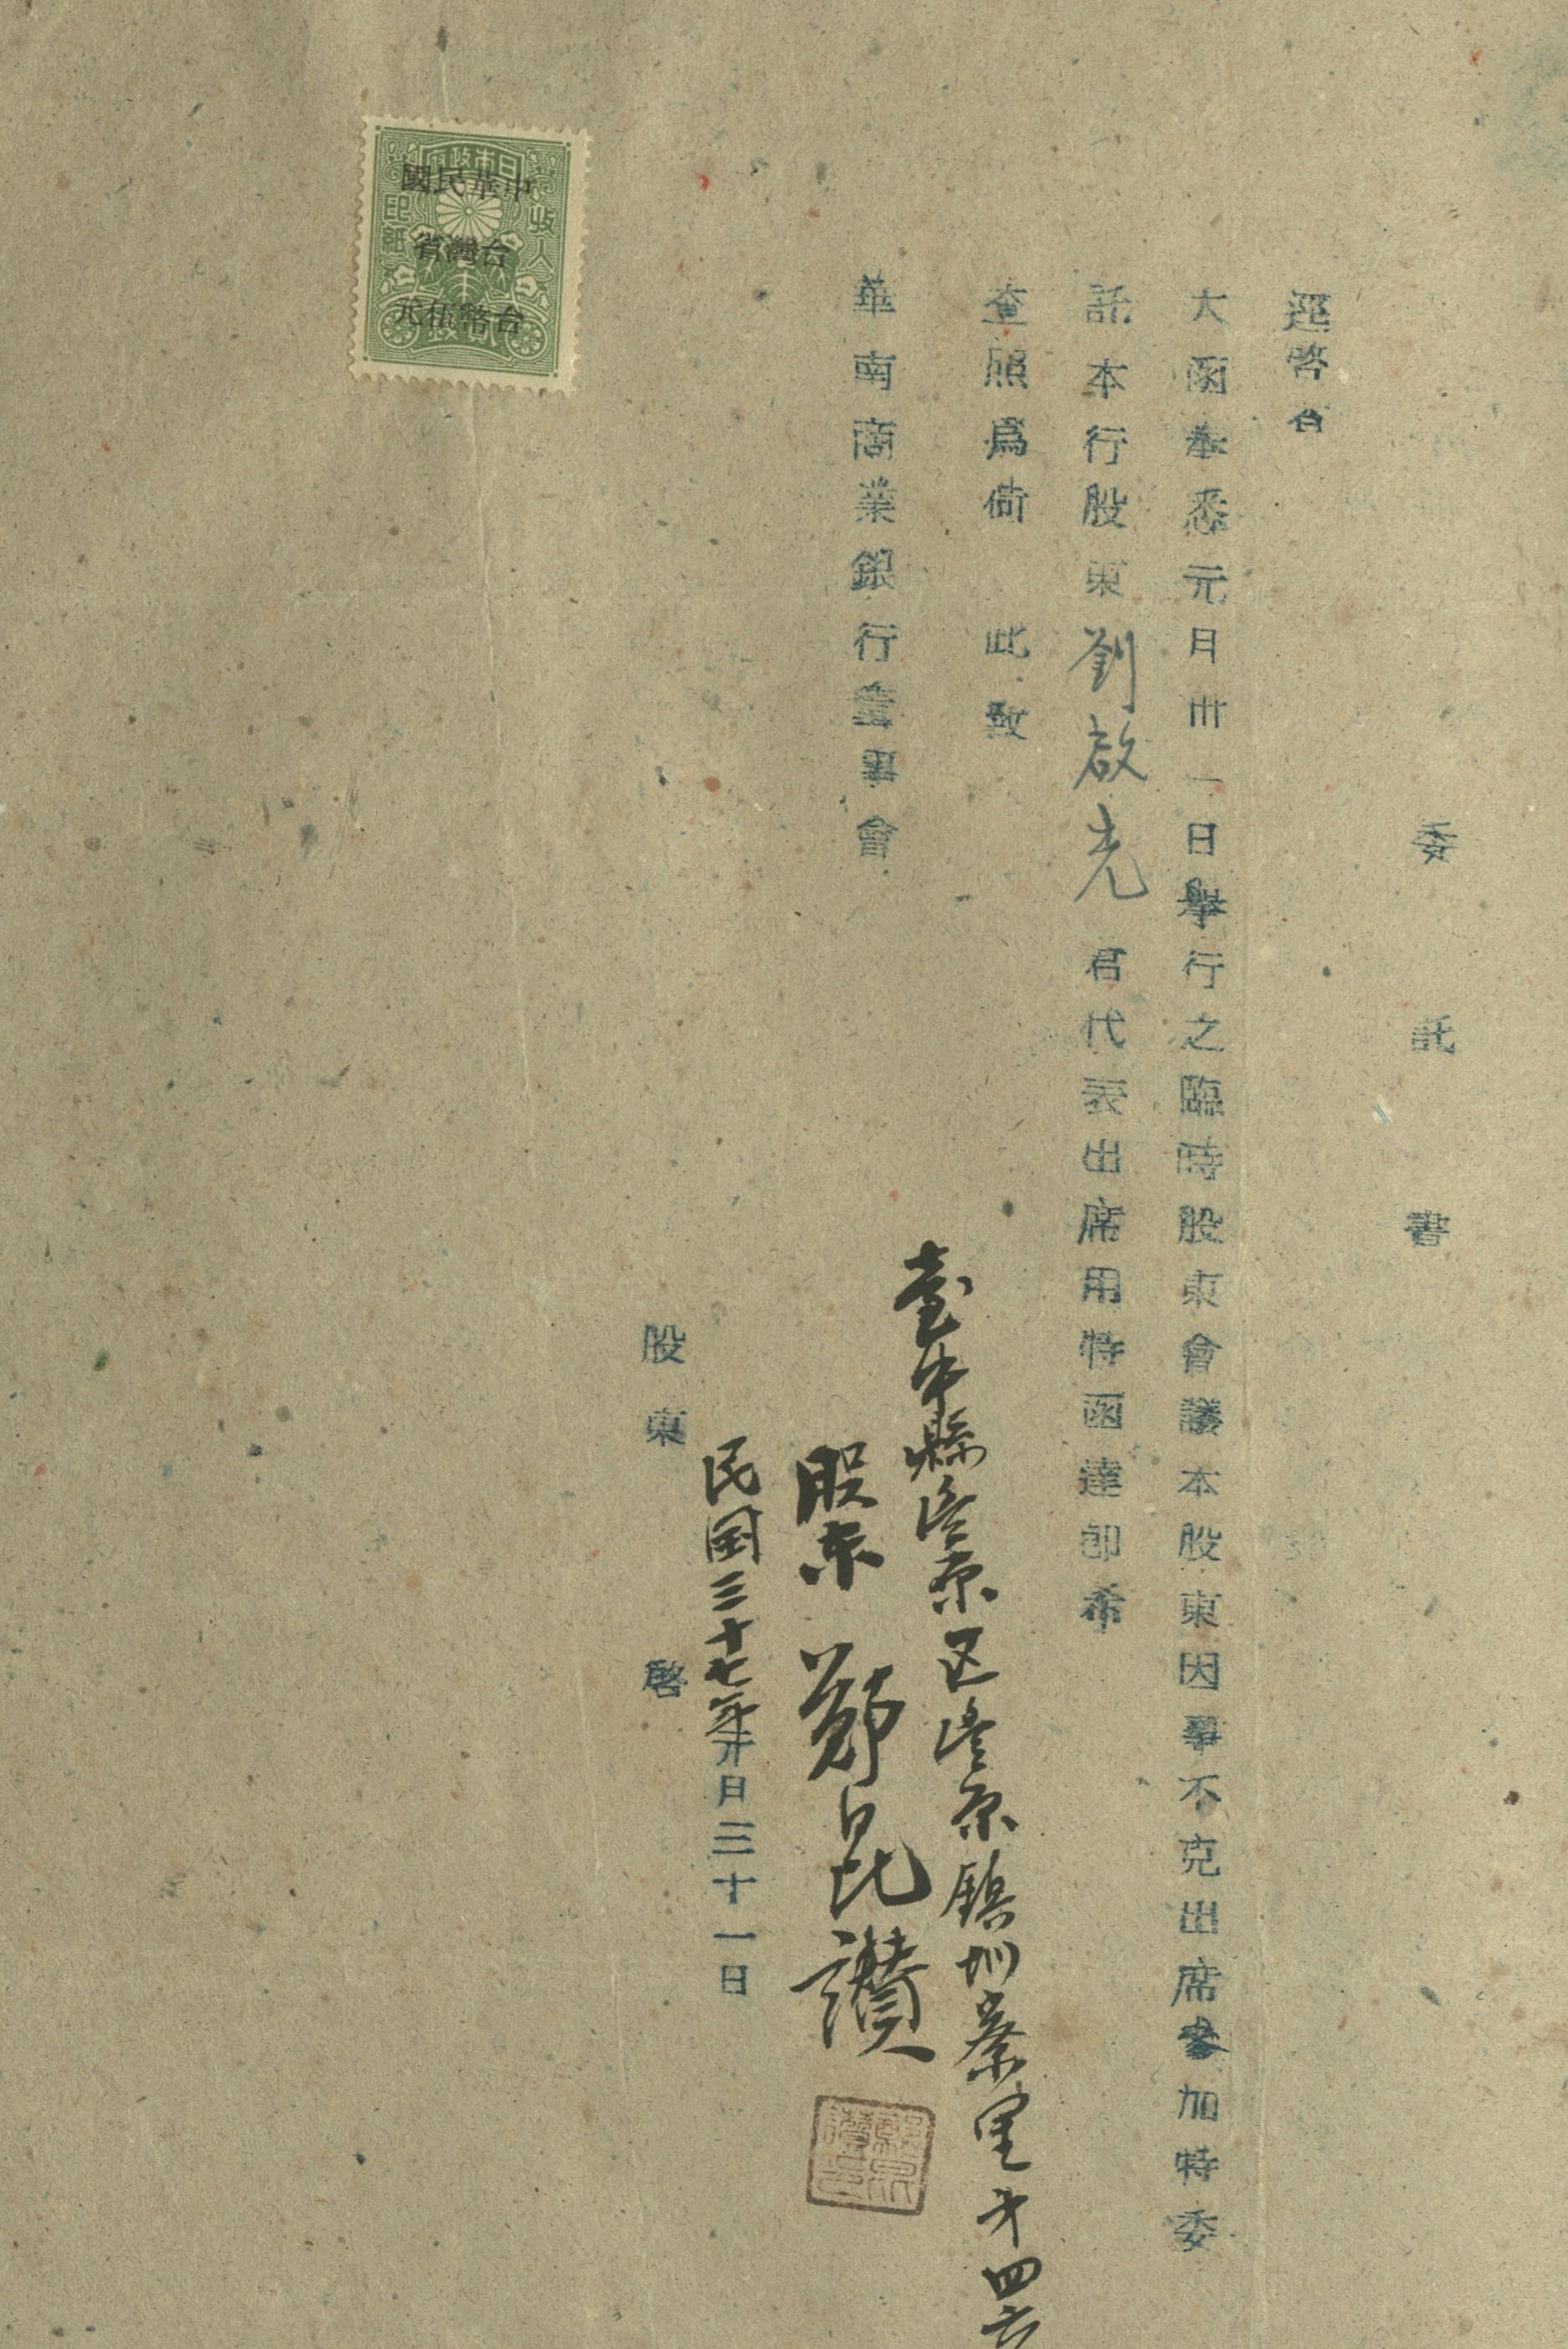 委託書
逕啓者
大函奉悉元月卅一日舉行之臨時股東會議本股東因事不克出席參加特委
託本行股東劉啟光君代表出席用特函達卽希
查照爲荷 此致
華南商業銀行董事會
臺中縣豐原区豐原鎮圳寮里才四六
股東 鄭昆讃
民国三十七年元月三十一日
股東 啓
日本政府
收入印紙
中華民國
台灣省
台幣伍元